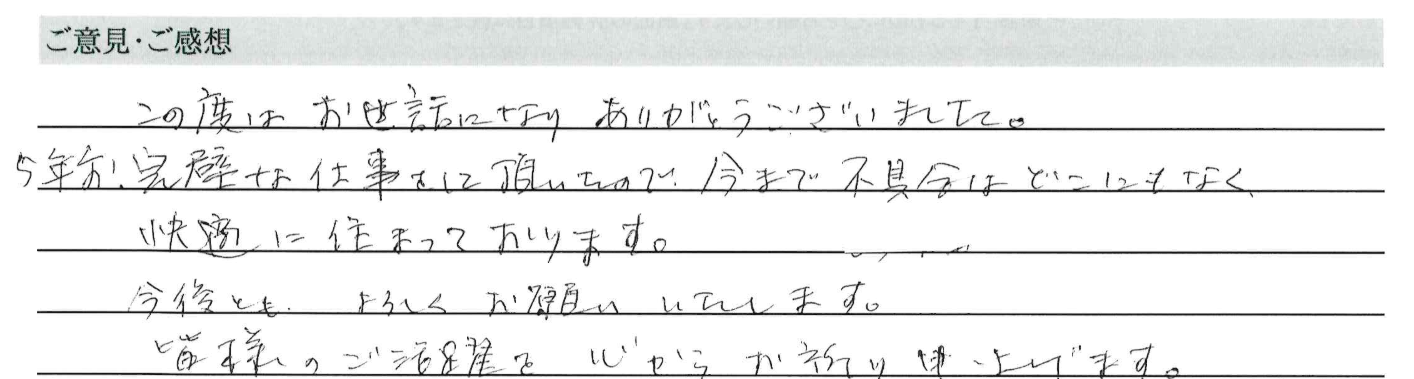 ご意見・ご感想
この度は お世話になり ありがとうございました。
5年前、完璧な仕事をして頂いたので、今まで不具合はどこにもなく、
快適に住まっております。
今後とも、よろしくお願いいたします。
皆様のご活躍を心からお祈り申し上げます。